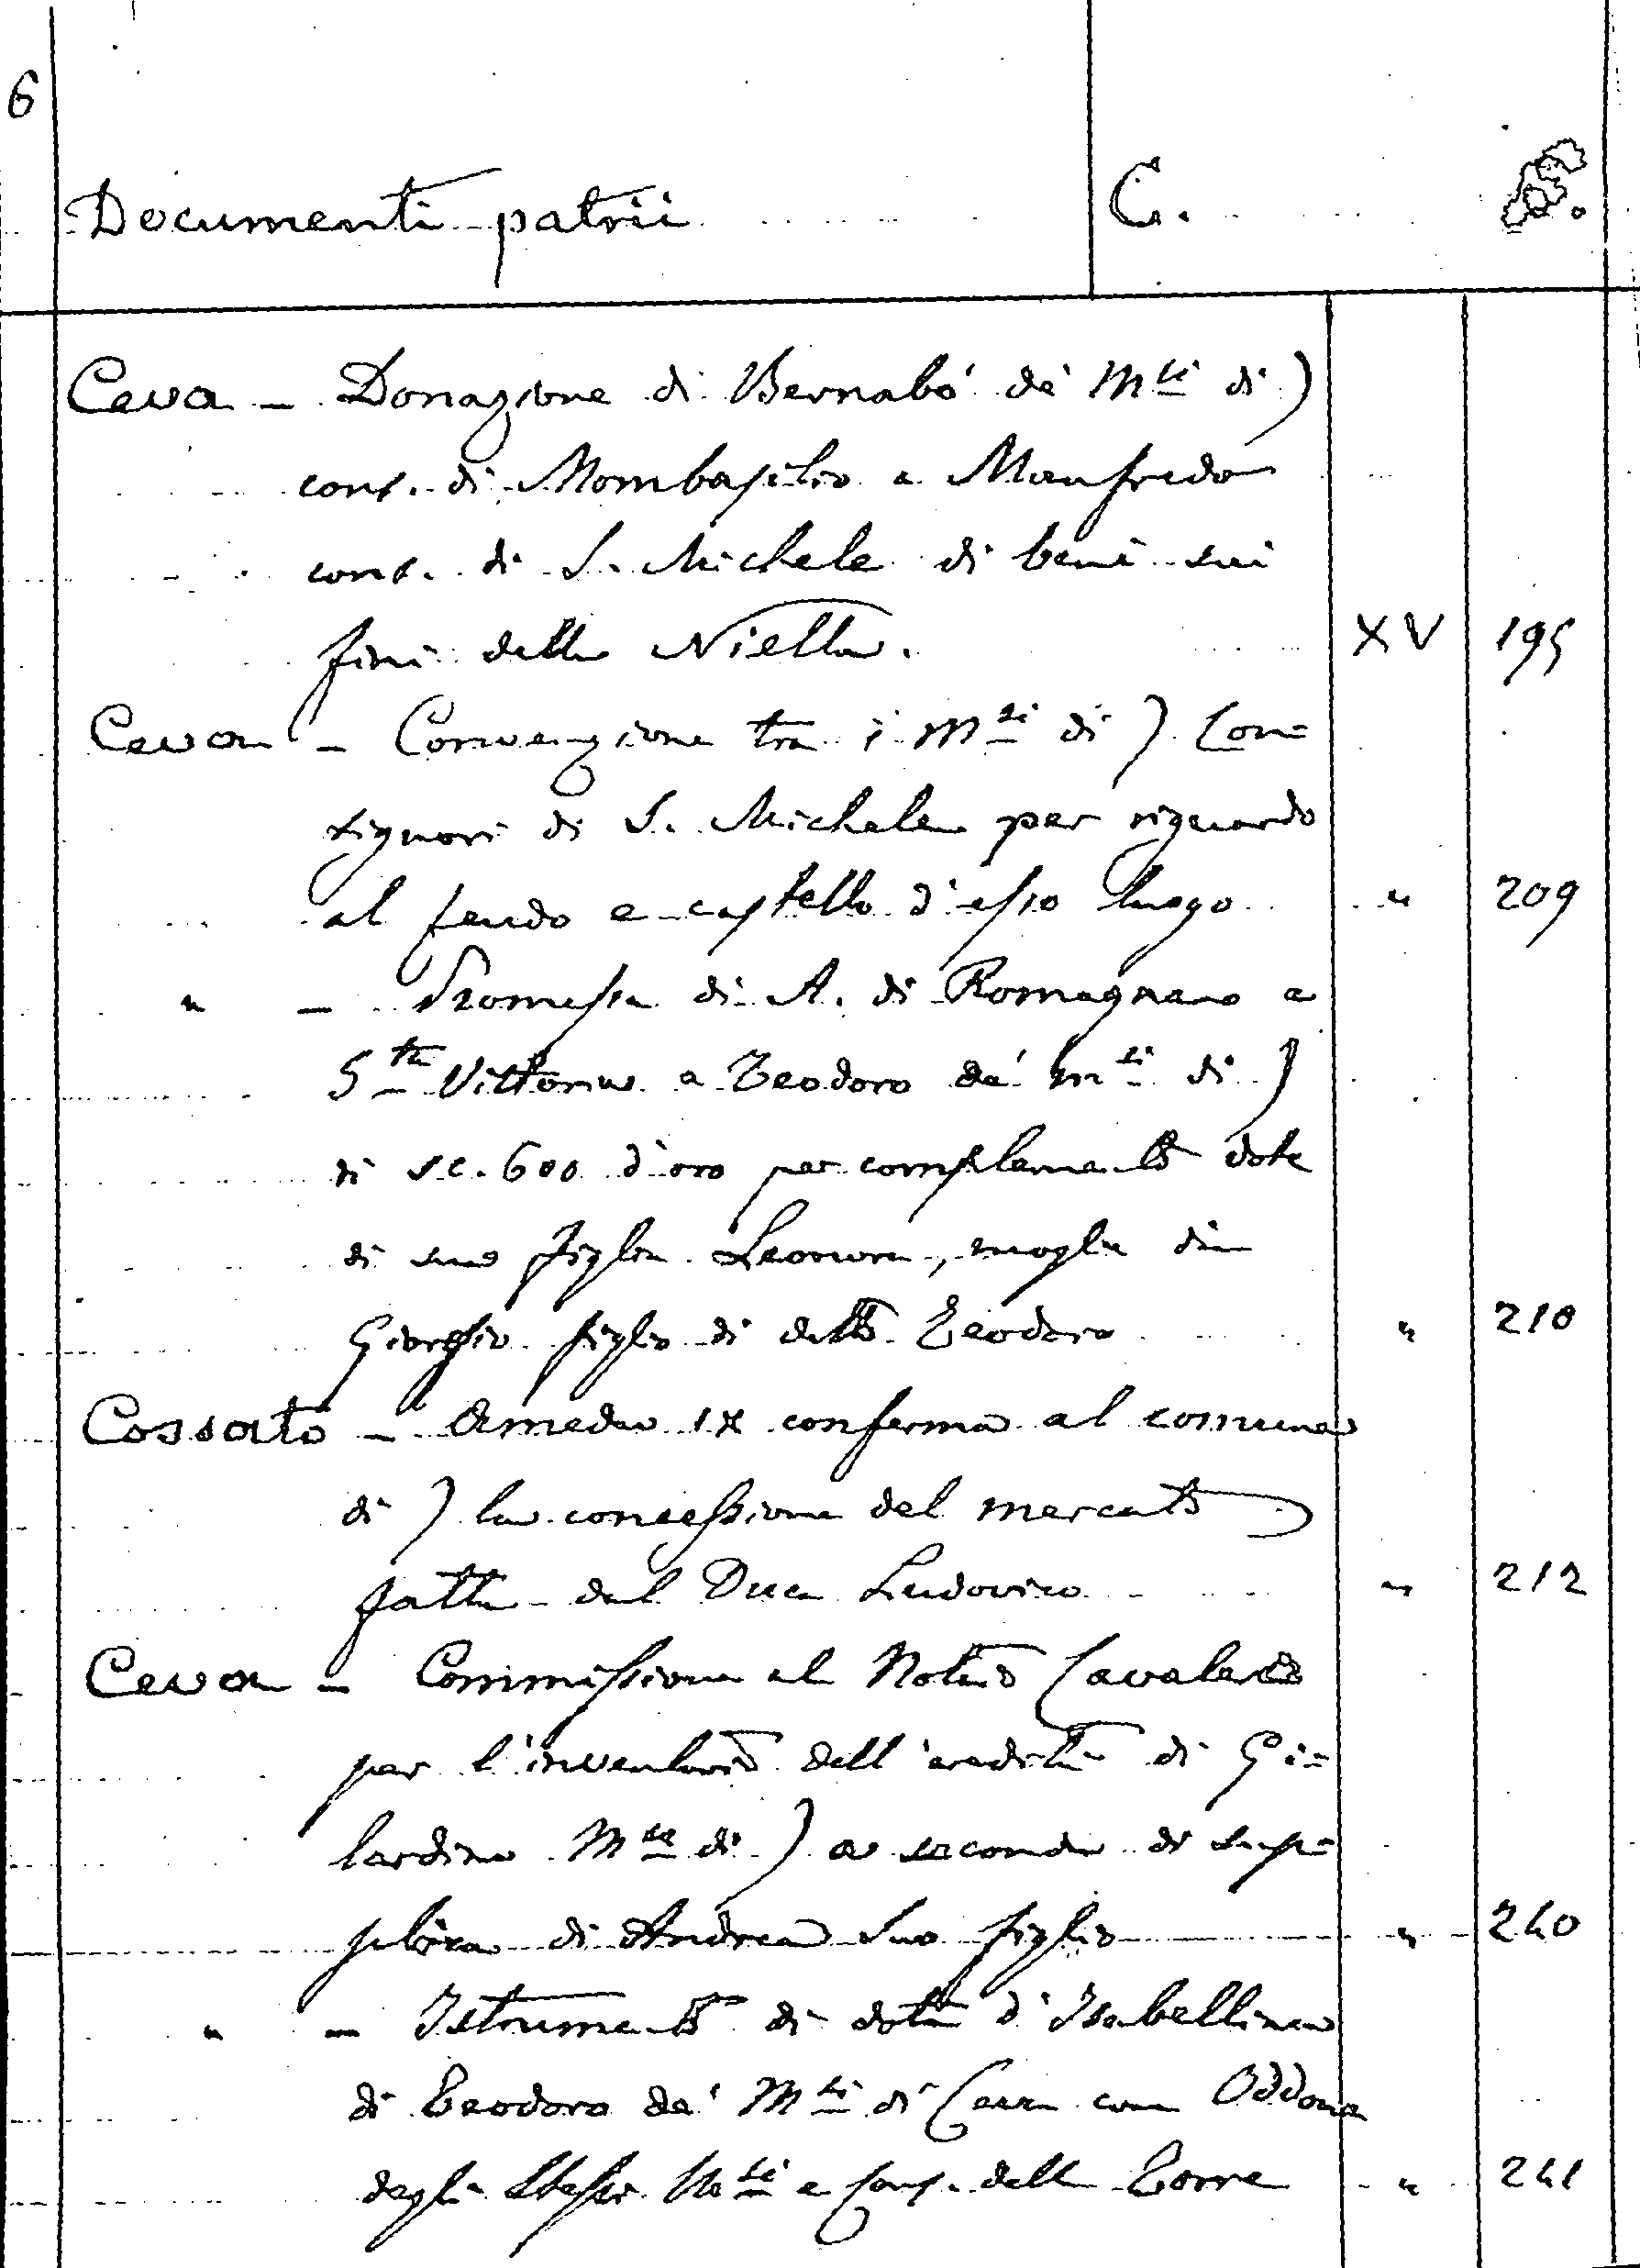 6
Documenti patrii C.
Ceva - Donazione di Bernabó de' M.si di )
cons. di Mombasilio a Manfredo
cons. di S. Michele di beni sui
fini della Niella. XV 195
Ceva - Convenzione tra i M.si di ) Con=
signori di S. Michele per riguardo
al feudo e castello d'esso luogo " 209
" - Promessa di A. di Romagnano a
S.ta Vittoria a Teodoro de' m.si di )
di sc. 600 d'oro per complemento dote
di sua figlia Leonora, moglie di
Giorgio figlio di detto Teodoro " 210
Cossato - Amedeo IX conferma al comune
di ) la concessione del mercato
fatta dal Duca Ludovico " 212
Ceva - Commissione al Notaio Cavalero
per l'inventario dell'eredità di Gi=
lardino M.se di ) a seconda di sup=
plica di Andrea suo figlio " 240
" - Istrumento di dote d'Isabellina
di Teodoro de' M.si di Ceva con Oddone
degli stessi M.si e cons. della Torre " 241